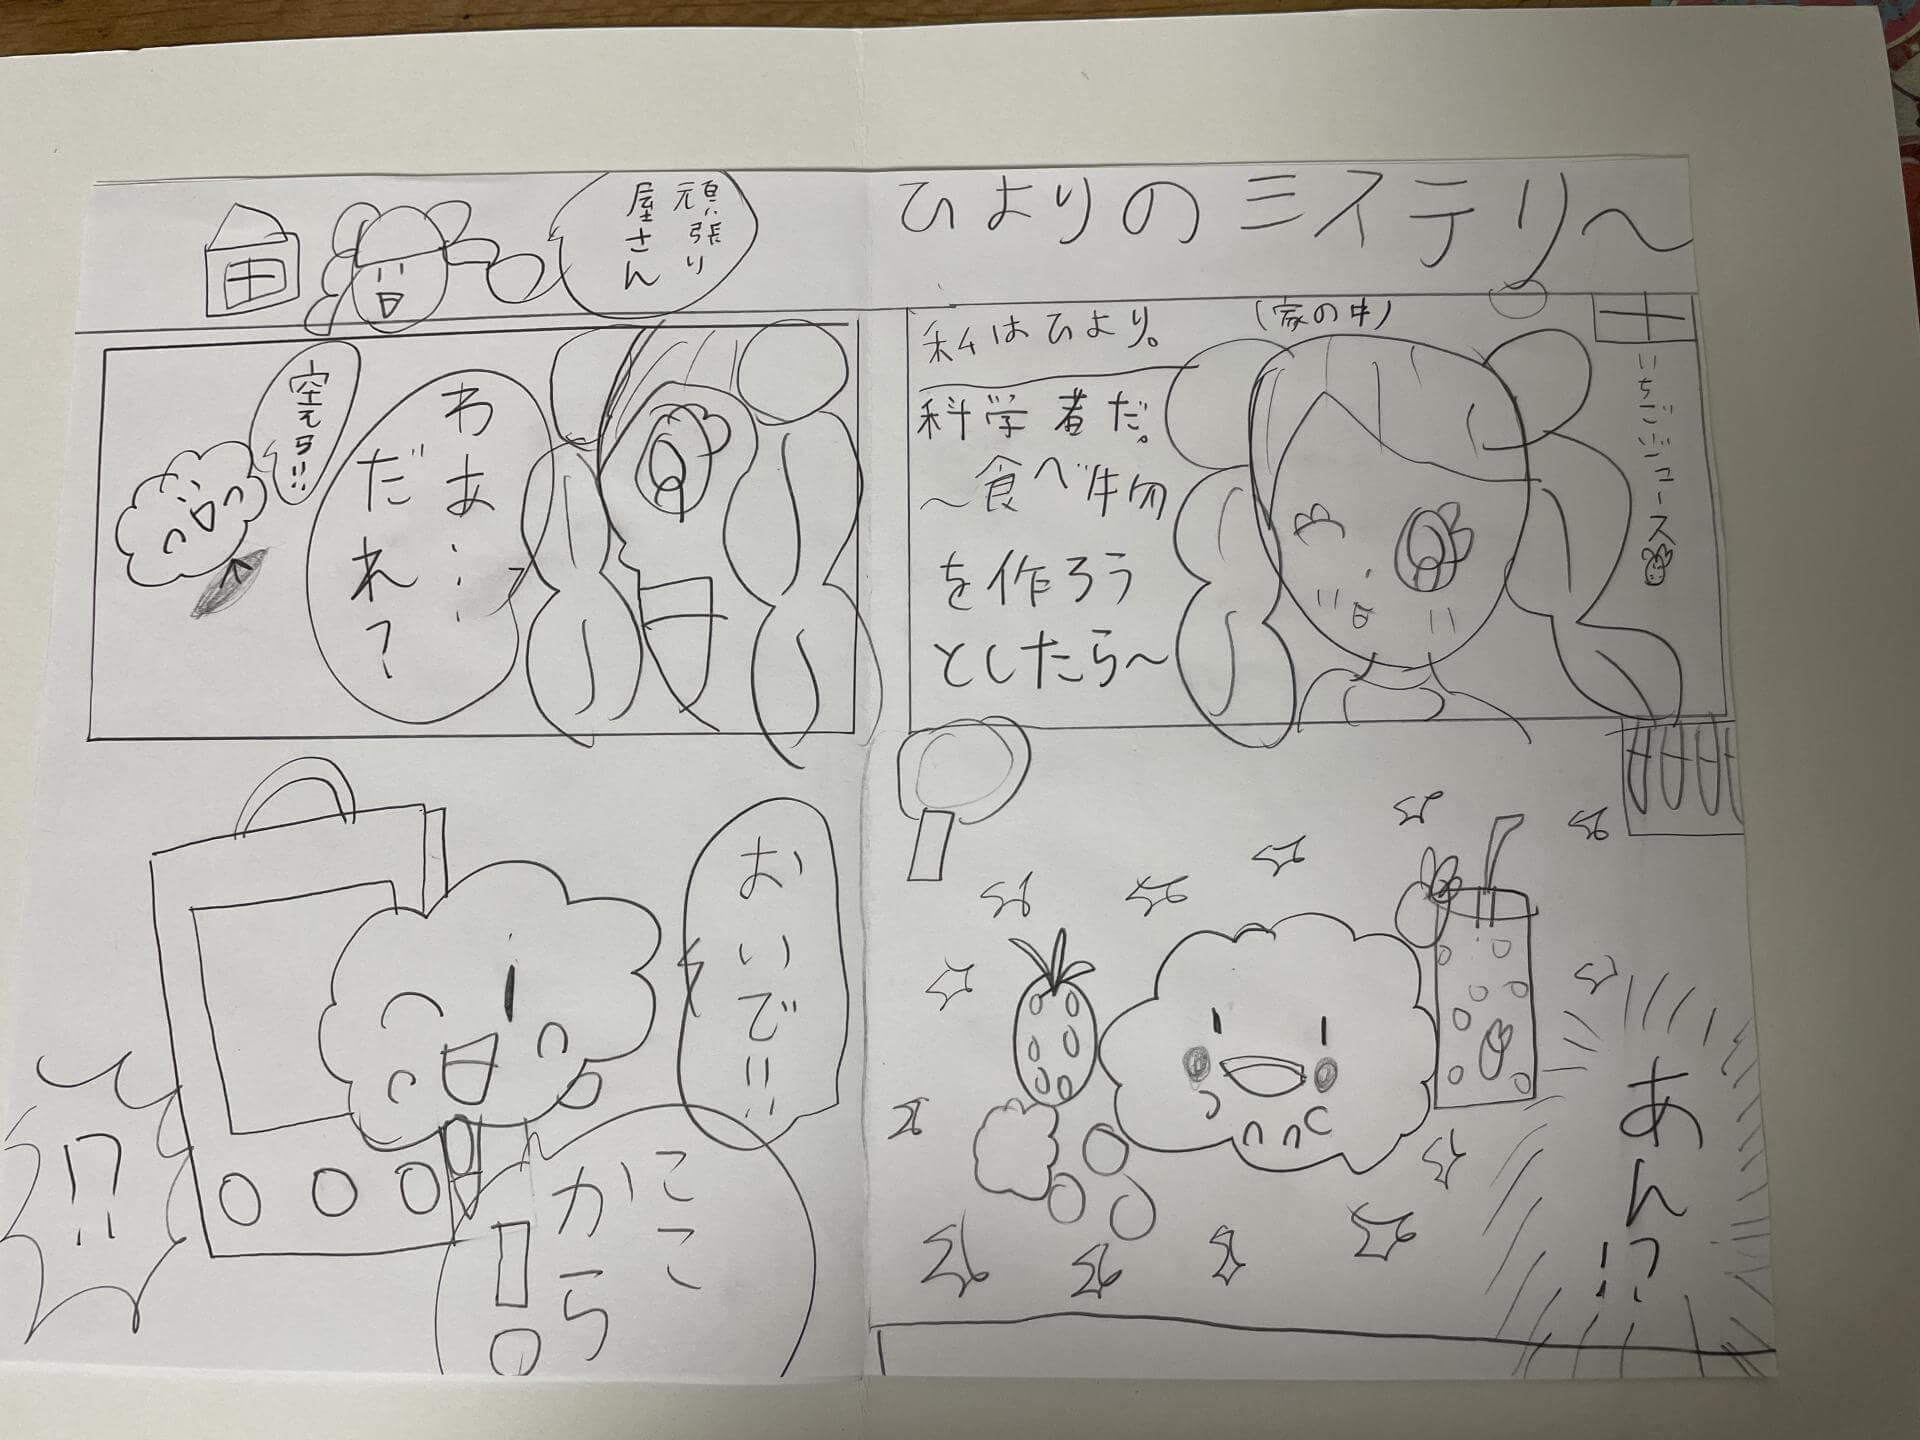 ひよりのミステリ～
頑張り
屋さん
(家の中)
私はひより。
科学者だ。
～食べ物
を作ろう
としたら～
いちごジュース
あん!?
わあ…
だれ？
おいで!!
ここ
から
!
!?